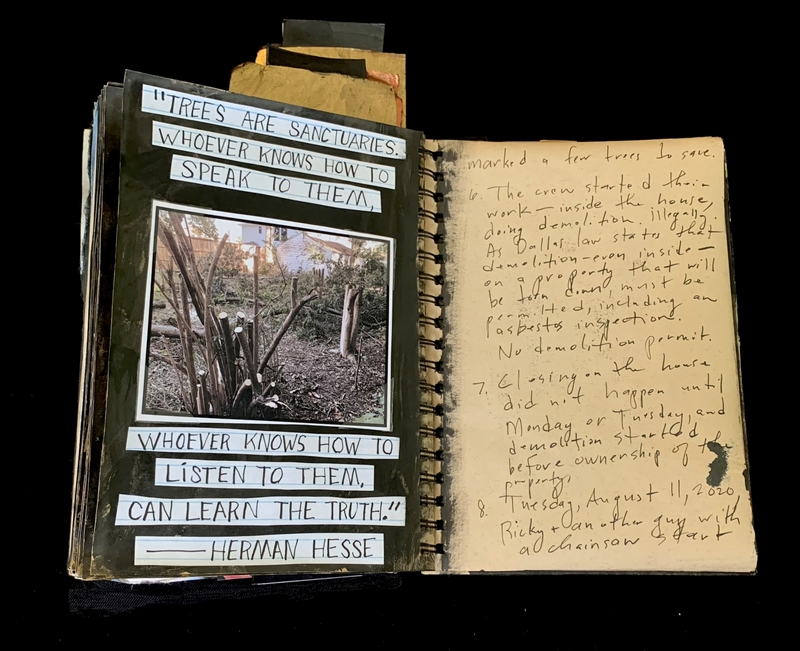 "TREES ARE SANCTUARIES.
WHOEVER KNOWS HOW TO
SPEAK TO THEM,
WHOEVER KNOWS HOW TO
LISTEN TO THEM,
CAN LEARN THE TRUTH."
— HERMAN HESSE
marked a few trees to save.
6. The crew started their
work—inside the house,
doing demolition. Illegally.
As Dallas law states that
demolition—even inside—
on a property that will
be torn down must be
permitted, including an
asbestos inspection.
No demolition permit.
7. Closing on the house
did not happen until
Monday or Tuesday, and
demolition started
before ownership of
property.
8. Tuesday, August 11, 2020,
Ricky + another guy with
a chainsaw start